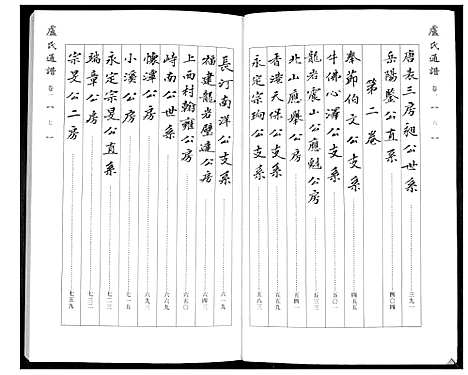 盧氏通譜 卷一 六
唐表三房昶公世系 三九一
岳陽鏊公直系 四〇四
第二卷
奉節伯文公支系 四五五
牛佛心澤公支系 五〇一
龍岩震山公應魁公房 五三三
北山應舉公房 五五三
香港天保公支系 五六五
永定宗珣公支系 五八三
長汀南洋公支系 六一九
福建龍岩壁達公房 六四三
上西村翰雍公房 六五〇
峙南公世系 六六六
懷澤公房 六九三
小溪公房 七一五
永定宗旻公直系 七二三
瑞章公房 七三二
宗旻公二房 七五九
盧氏通譜 卷一 七